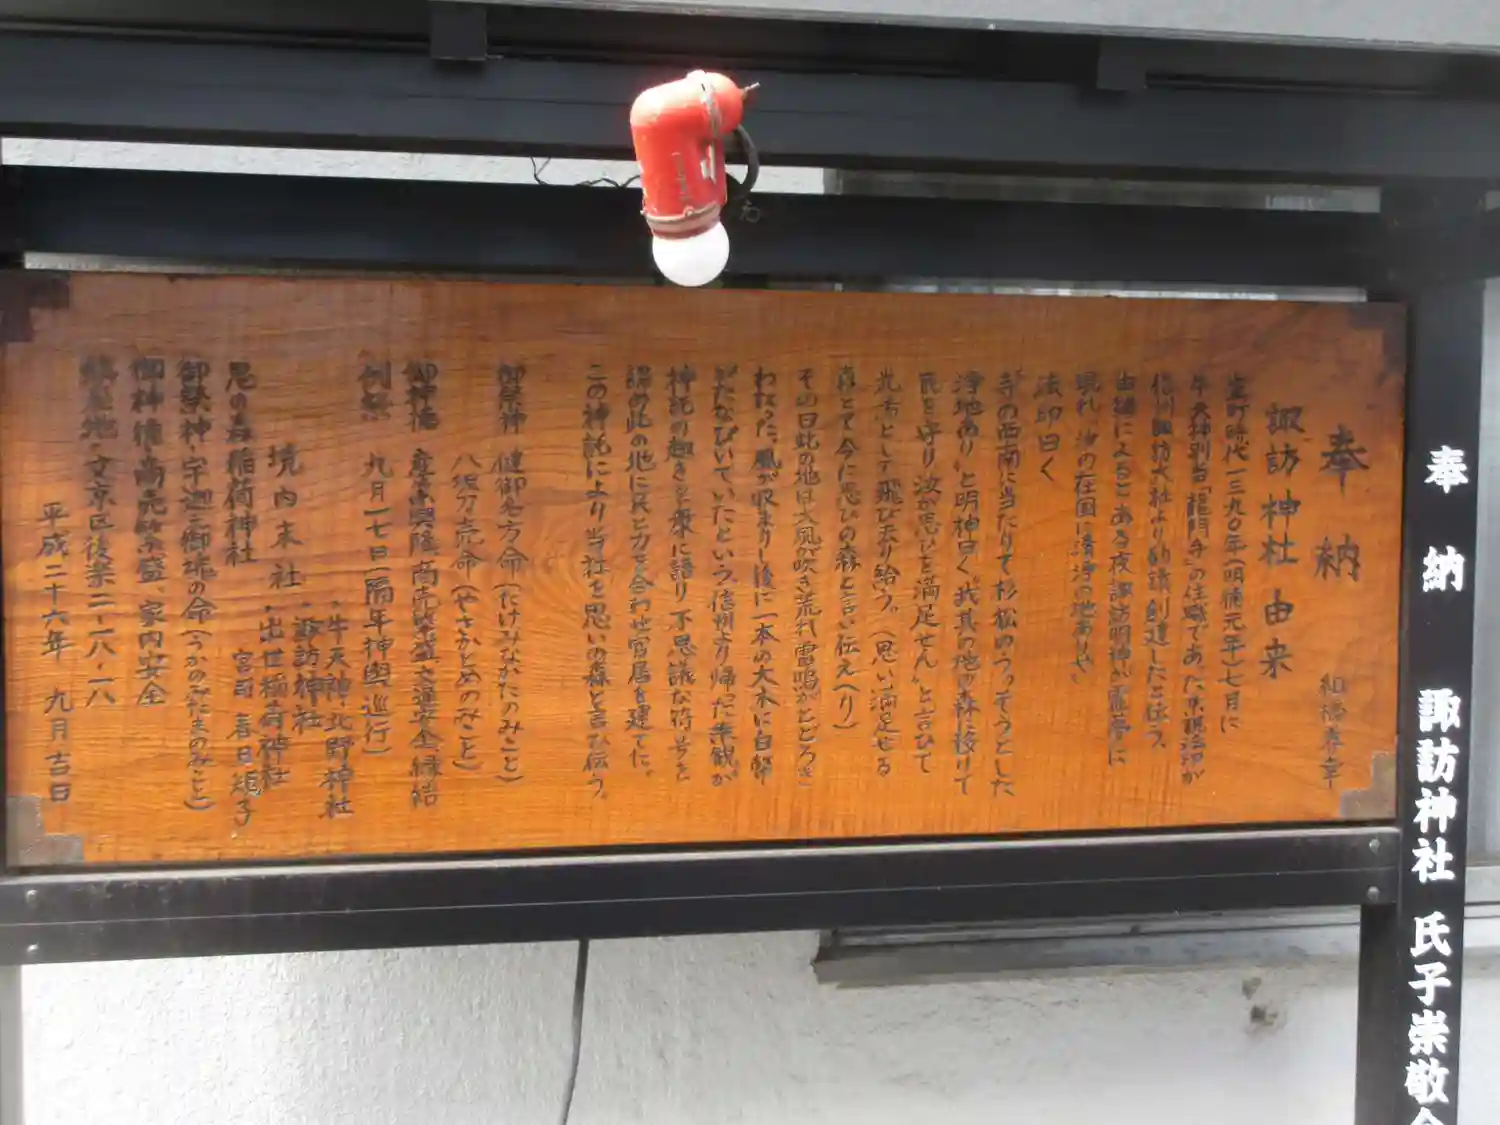 奉納
和橋春章
諏訪神社由来
室町時代一三九〇年(明徳元年)七月に
牛天神別当「龍門寺」の住職であった京親法印が
信州諏訪大社より勧請創建したと伝う。
由緒によるとある夜諏訪明神が霊夢に
現れ、汝の在国に清浄の地ありや
法印曰く
寺の西南に当たりて杉松のうっそうとした
浄地あり、と明神曰く我其の地の森に移りて
民を守り汝が思いを満足せん、と言ひて
光有として飛び去り給う。(思い満足せる
森とて今に思ひの森と言い伝えへり)
その日此の地は大風が吹き荒れ雷鳴がとどろき
わたった。風が収まりし後に一本の大木に白幣
がたなびいていたという信州より帰った
神託の趣きを衆に語り不思議な符号を
認め此の地に民と力を合わせ宮居を建てた。
この神託により当社を思いの森と言ひ伝う。
御祭神 健御名方命(たけみなかたのみこと)
八坂刀売命(やさかとめのみこと)
御神徳 産業興隆・商売繁盛・交通安全・縁結
例祭 九月二七日(隔年神輿巡行)
・牛天神北野神社
・諏訪神社
境内末社・出世稲荷神社
宮司 春日矩子
思の森稲荷神社
御祭神・宇迦之御魂の命(うかのみたまのみこと)
御神徳・商売繁盛、家内安全
鎮座地・文京区後楽二-一八-一八
平成二十六年 九月吉日
奉納 諏訪神社 氏子崇敬会